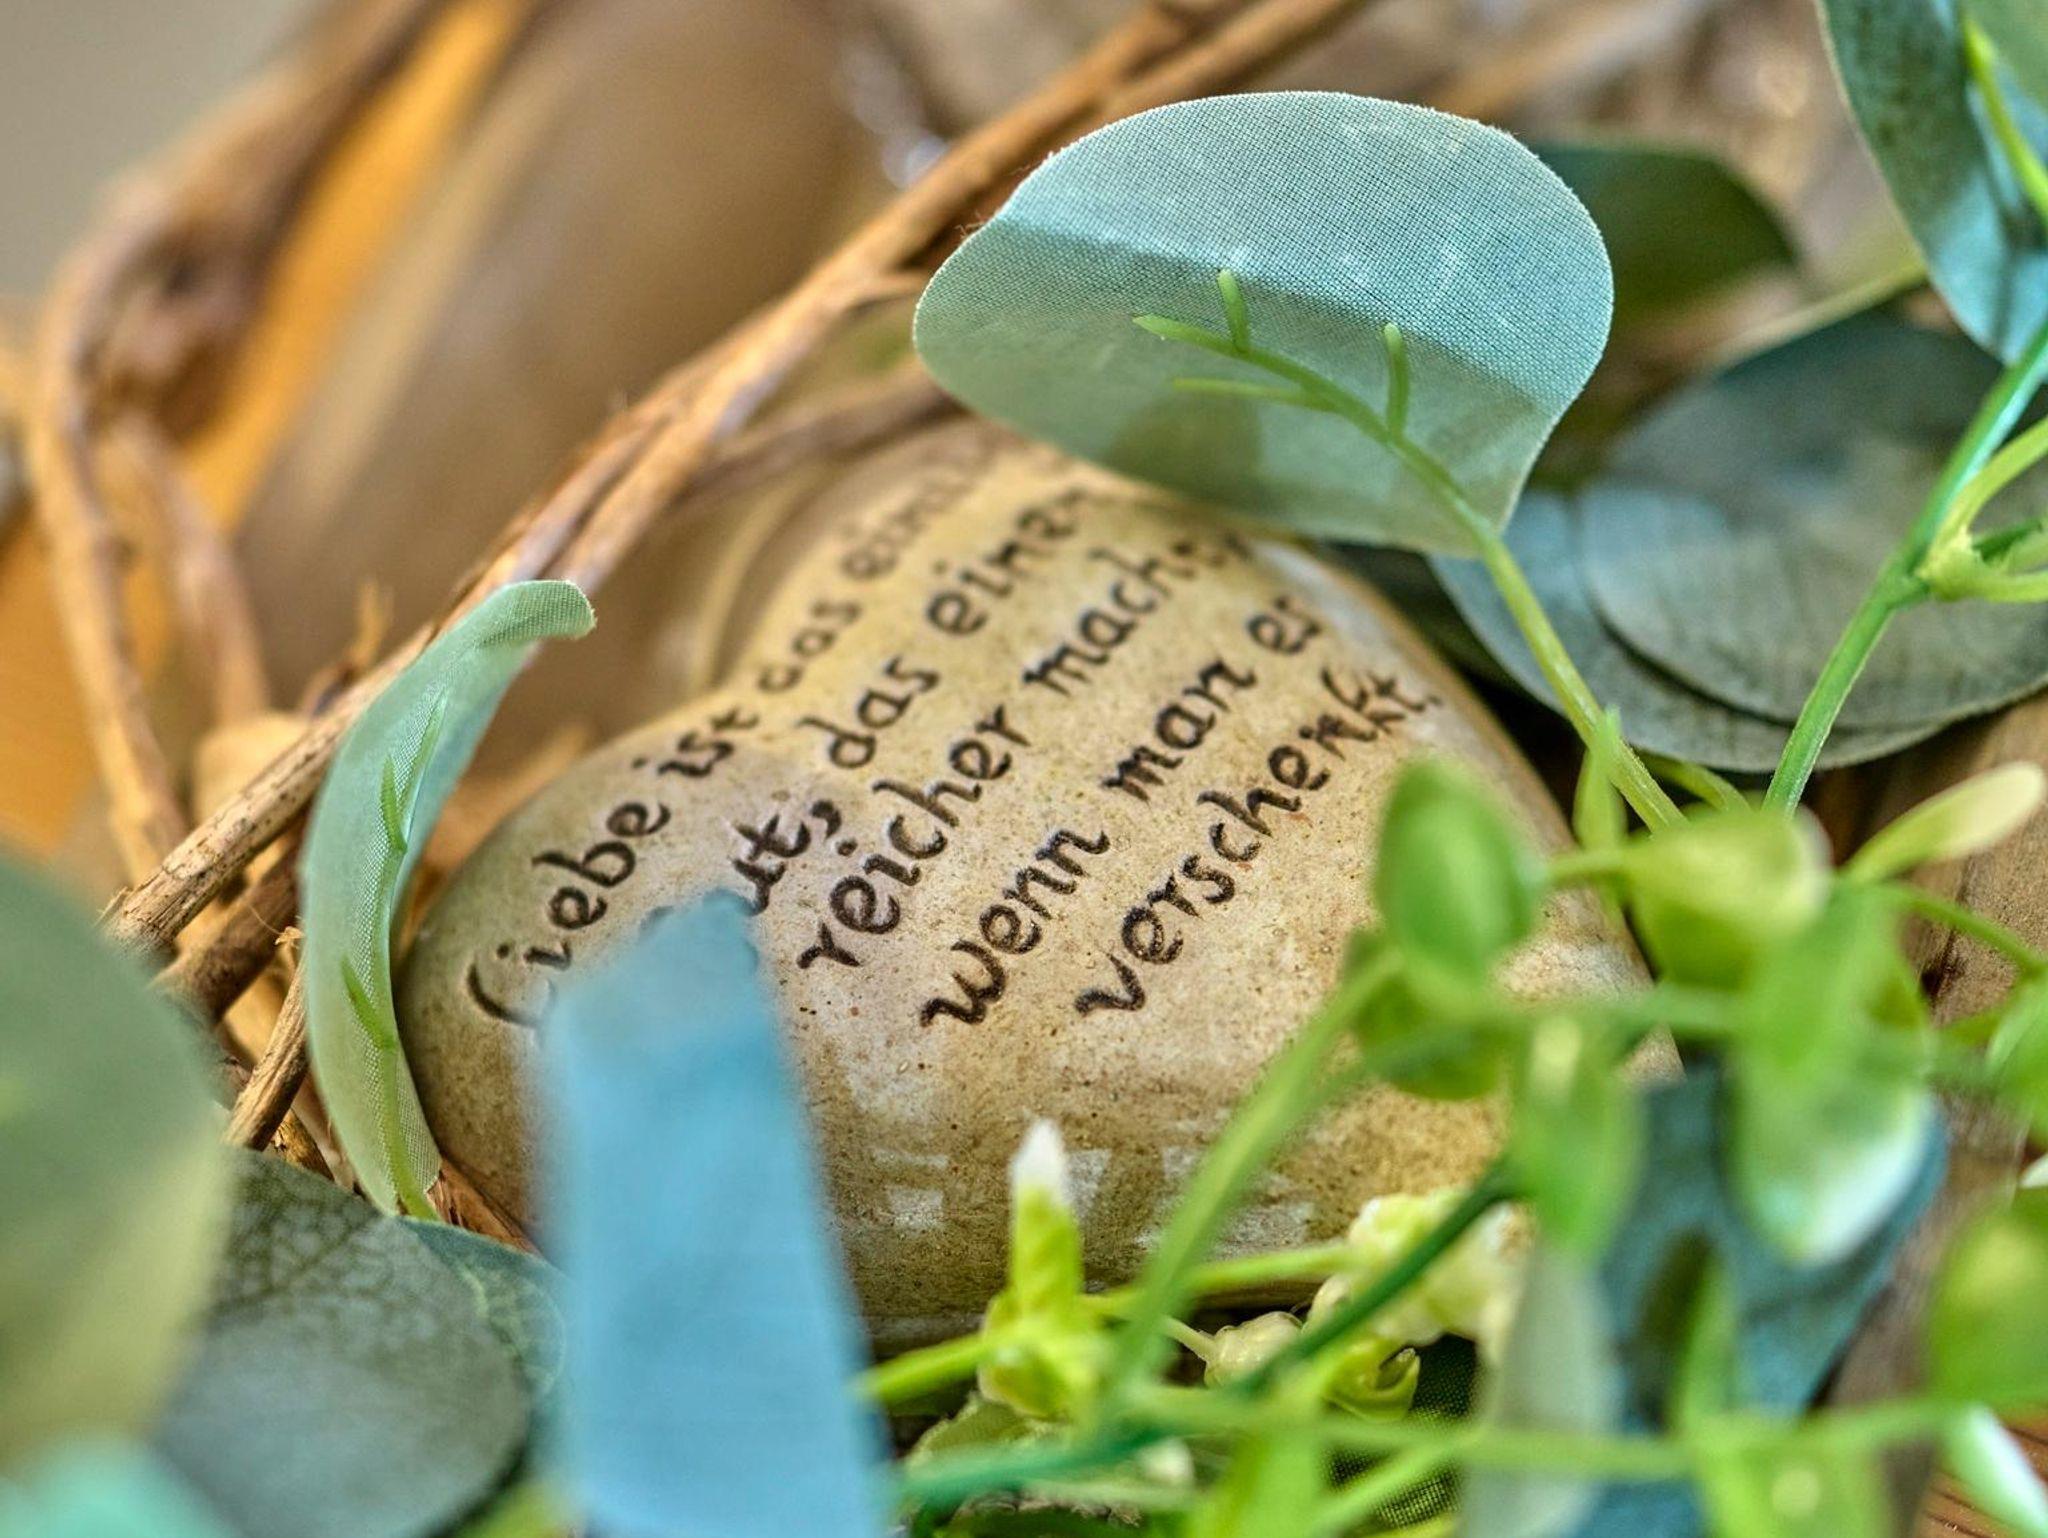 Liebe ist das
das einen
reicher macht,
wenn man es
verschenkt.